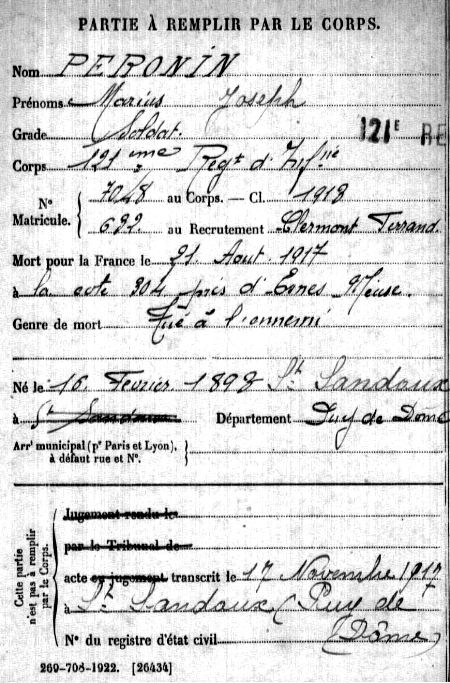 PARTIE À REMPLIR PAR LE CORPS.
Nom PERONIN
Prénoms Marius Joseph
Grade Soldat.
121E RE
Corps 121ème Régt d'Infie
N° Matricule. { 7048 au Corps. — Cl. 1918
692 au Recrutement Clermont Ferrand.
Mort pour la France le 21 Aout 1917
à la cote 304 près d'Esnes Meuse.
Genre de mort Tué à l'ennemi
Né le 16 Février 1898 St Sandoux
à St Sandoux Département Puy de Dôme
Arrt municipal (pr Paris et Lyon),
à défaut rue et N°.
Cette partie n'est pas à remplir par le Corps.
Jugement rendu le
par le Tribunal de
acte ou jugement transcrit le 17 Novembre 1917
à St Sandoux (Puy de
Dôme)
N° du registre d'état civil
269-708-1922. [26434]